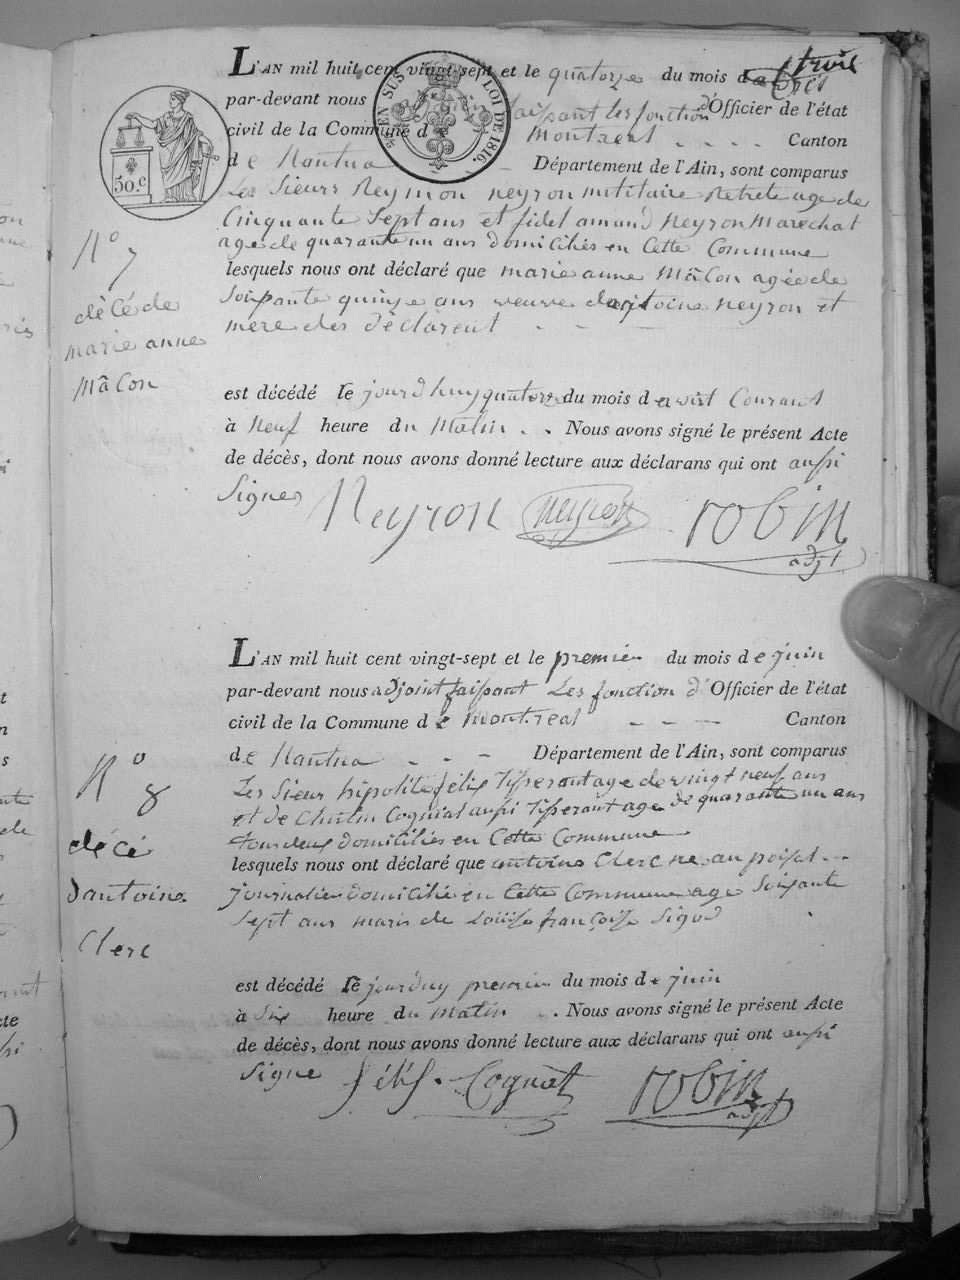 L'AN mil huit cent vingt-sept et le quatorze du mois d'avril
par-devant nous faisant les fonction d'Officier de l'état
civil de la Commune de Montreal Canton
de Nantua Département de l'Ain, sont comparus
EN SUS LOI DE 1816.
50.c
Les Sieurs Reymon neyron militaire Retrete age de
Cinquante Sept ans et fidel amand Neyron Marechal
age de quarante un ans domiciliés en Cette Commune
lesquels nous ont déclaré que marie anne Mâcon agée de
Soixante quinze ans veuve dantoine neyron et
mere des déclarent
N° 7
décé de
marie anne
Mâcon
est décédé le jourdhuy quatorze du mois d'avril Courant
à Neuf heure du Matin . . Nous avons signé le présent Acte
de décès, dont nous avons donné lecture aux déclarans qui ont aussi
Signes Neyron neyron robin
adjt
L'AN mil huit cent vingt-sept et le premier du mois de juin
par-devant nous adjoint faissant Les fonction d'Officier de l'état
civil de la Commune de Montreal Canton
de Nantua Département de l'Ain, sont comparus
Les Sieur hipolite félix Tisserant age de vingt neuf ans
et de Cognat aussi Tisserant age de quarante un ans
tous deux domiciliés en Cette Commune
lesquels nous ont déclaré que antoine Clerc ne au poisat
journalier domicilié en Cette Commune age Soixante
Sept ans maris de Louise françoise Sigod
N° 8
décé
dantoine
Clerc
est décédé le jourduy premier du mois de juin
à Six heure du Matin . . Nous avons signé le présent Acte
de décès, dont nous avons donné lecture aux déclarans qui ont aussi
Signe félix . Cognat robin
adjt